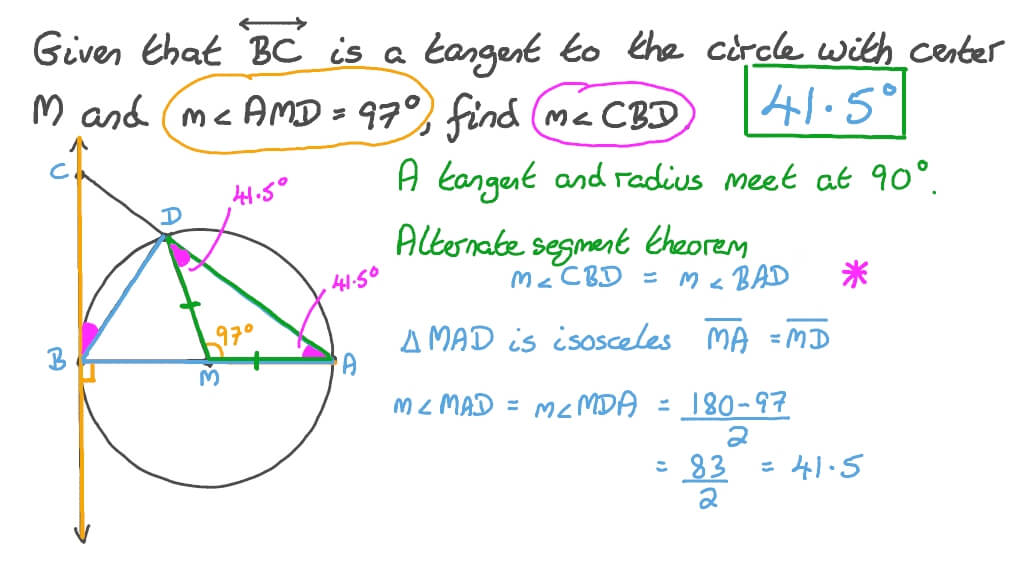 Given that BC is a tangent to the circle with center
M and m∠AMD = 97°, find m∠CBD.
41.5°
A tangent and radius meet at 90°.
Alternate segment theorem
m∠CBD = m∠BAD *
△MAD is isosceles MA = MD
m∠MAD = m∠MDA = 180-97
2
= 83 = 41.5
2
C
D
41.5°
41.5°
97°
B
M
A